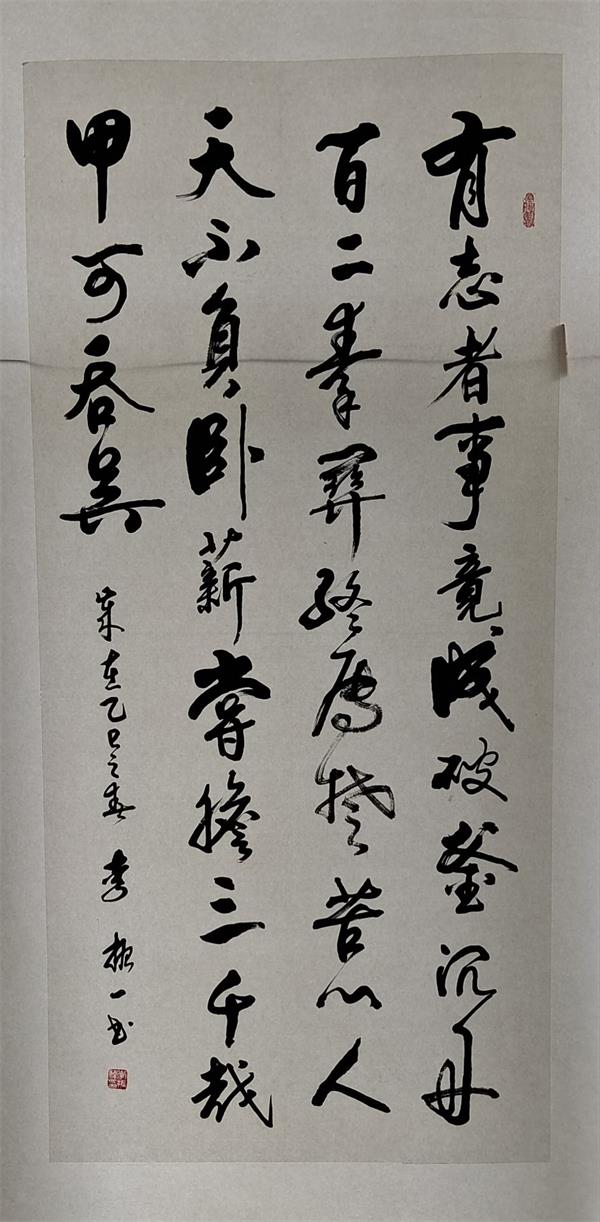 有志者事竟成破釜沉舟
百二秦關終属楚苦心人
天不負卧薪嘗膽三千越
甲可吞吴
歲在乙巳之春 李 一书